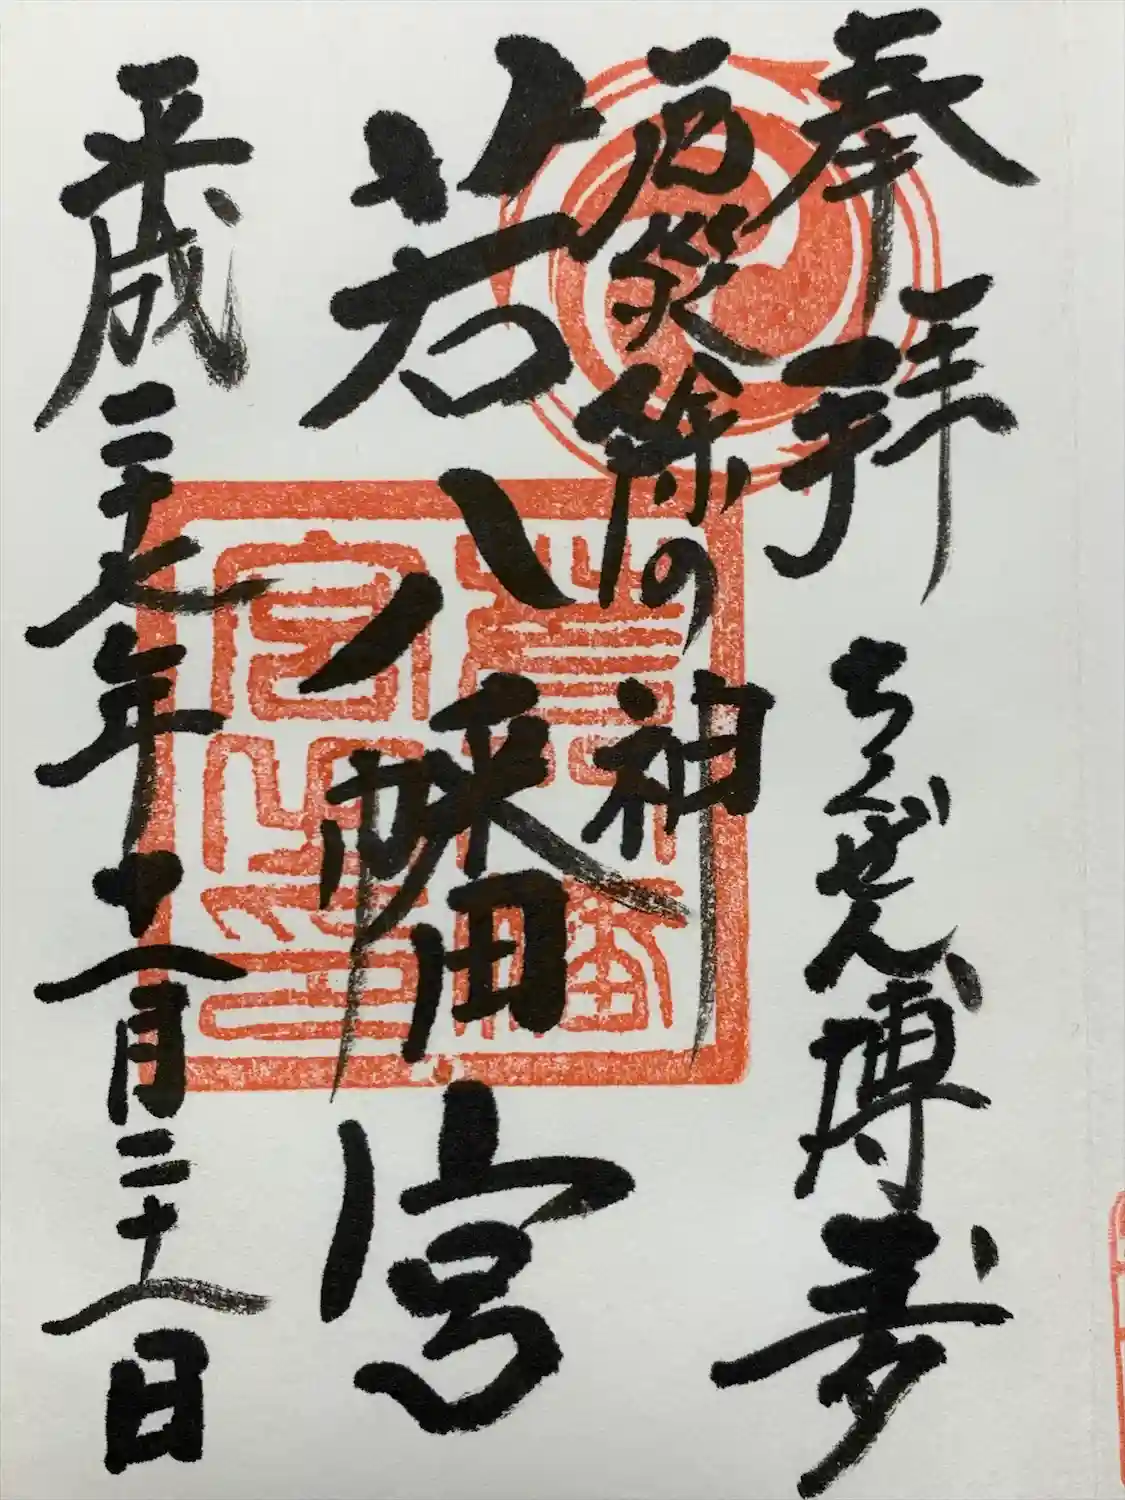 奉拝 ちくぜん博多
厄災除の神
若八幡宮
平成二十七年十一月二十一日
若八幡
宮之印